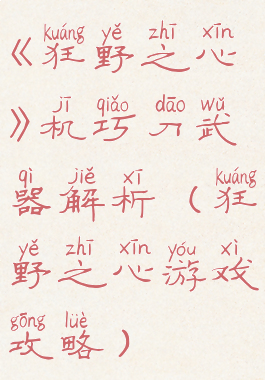 kuáng yě zhī xīn
《狂野之心
jī qiǎo dāo wǔ
》机巧刀武
qì jiě xī kuáng
器解析（狂
yě zhī xīn yóu xì
野之心游戏
gōng lüè
攻略）